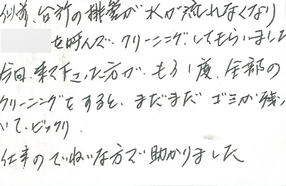 以前、台所の排管が水が流れなくなり
を呼んで、クリーニングしてもらいました
今回、来て下さった方が、もう1度、全部の
クリーニングをすると、まだまだゴミが残って
いて、ビックリ
仕事のていねいな方で助かりました